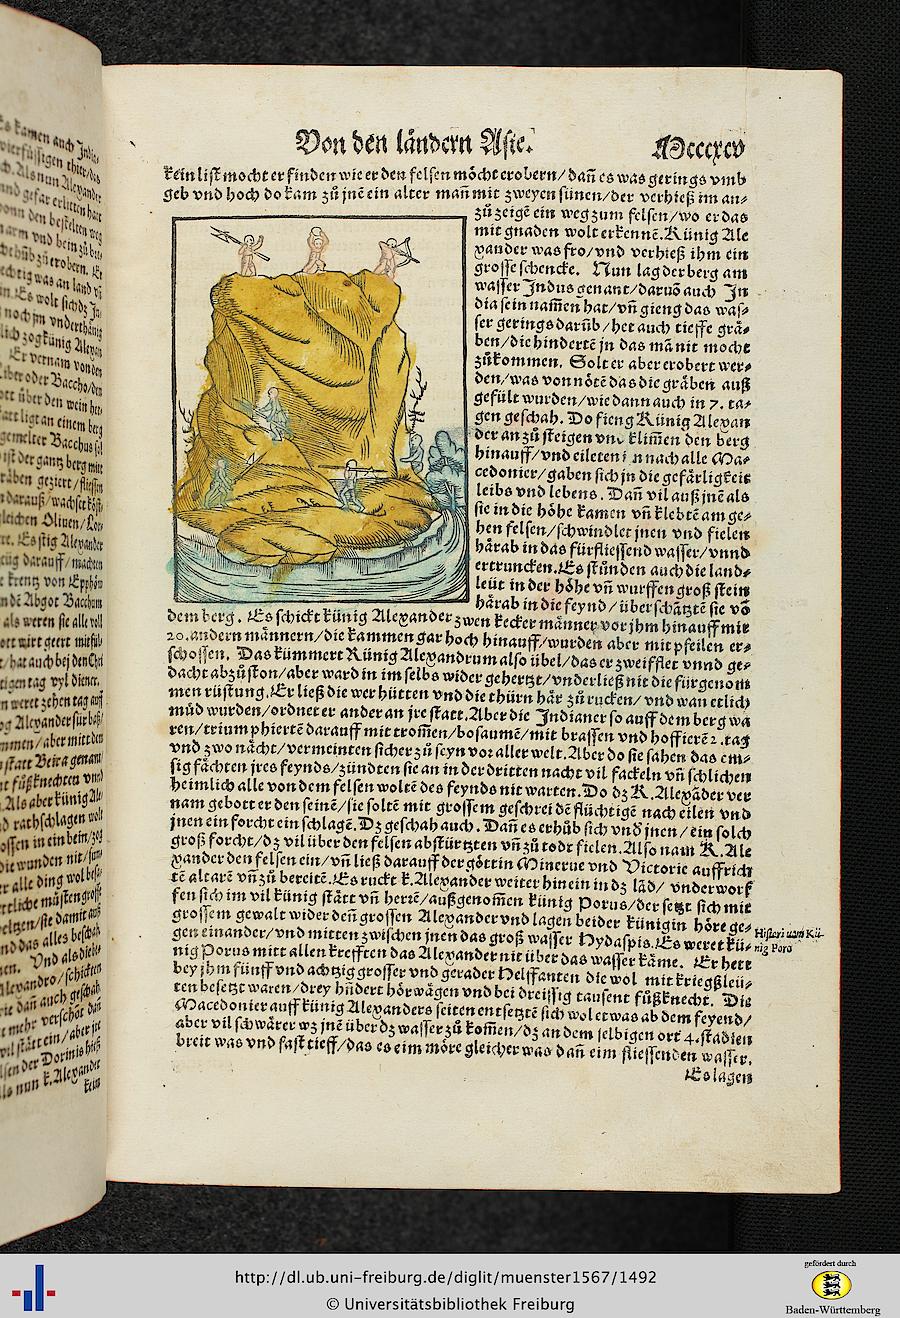 Von den ländern Asie.
Mccccxcv
kein list mocht er finden wie er den felsen möcht erobern/ dañ es was gerings vmb
geb vnd hoch do kam zů jnē ein alter mañ mit zweyen sünen/ der verhieß im an-
zů zeigē ein weg zum felsen/ wo er das
mit gnaden wolt erkennē. Künig Ale
xander was fro/ vnd verhieß ihm ein
grosse schencke. Nun lag der berg am
wasser Jndus genant/ daruō auch In
dia sein nam̃en hat/ vñ gieng das was-
ser gerings darūb/ het auch tieffe grä-
ben/ die hindertē jn das mā nit mocht
zůkommen. Solt er aber erobert wer-
den/ was von nötē das die gräben auß
gefült wurden/ wie dann auch in 7. ta-
gen geschah. Do fieng Künig Alexan
der an zů steigen vnd klim̃en den berg
hinauff/ vnd eileten im nach alle Ma-
cedonier/ gaben sich jn die gefärligkeit
leibs vnd lebens. Dañ vil auß jnē als
sie in die höhe kamen vñ klebtē am ge-
hen felsen/ schwindlet jnen vnd fielen
härab in das fürfliessend wasser/ vnnd
ertruncken. Es stůnden auch die land-
leüt in der höhe vñ wurffen groß stein
härab in die feynd/ überschätztē sie vō
dem berg. Es schickt künig Alexander zwen kecker männer vor jhm hinauff mit
20. andern männern/ die kammen gar hoch hinauff/ wurden aber mit pfeilen er-
schossen. Das kümmert Künig Alexandrum also übel/ das er zweifflet vnnd ge-
dacht abzůston/ aber ward in im selbs wider gehertzt/ vnderließ nit die fürgenom
men rüstung. Er ließ die wer hütten vnd die thürn här zů rucken/ vnd wan etlich
müd wurden/ ordnet er ander an jre statt. Aber die Indianer so auff dem berg wa
ren/ triumphiertē darauff mit trom̃en/ bosaumē/ mit brassen vnd hoffierē 2. tag
vnd zwo nächt/ vermeinten sicher zů seyn vor aller welt. Aber do sie sahen das em-
sig fächten jres feynds/ zündten sie an in der dritten nacht vil fackeln vñ schlichen
heimlich alle von dem felsen woltē des feynds nit warten. Do dz K. Alexāder ver
nam gebott er den seinē/ sie soltē mit grossem geschrei dē flüchtigē nach eilen vnd
jnen ein forcht ein schlagē. Dz geschah auch. Dañ es erhůb sich vnd jnen/ ein solch
groß forcht/ dz vil über den felsen abstürtzten vñ zů todt fielen. Also nam K. Ale
xander den felsen ein/ vñ ließ darauff der göttin Minerue vnd Victorie auffrich
tē altarē vñ zů bereitē. Es ruckt k. Alexander weiter hinein in dz läd/ vnderworf
fen sich im vil künig stätt vñ herrē/ außgenom̃en künig Porus/ der setzt sich mit
grossem gewalt wider deñ grossen Alexander vnd lagen beider künigin höre ge-
gen einander/ vnd mitten zwischen jnen das groß wasser Hydaspis. Es weret kü-
nig Porus mitt allen krefften das Alexander nit über das wasser käme. Er hett
bey jhm fünff vnd achtzig grosser vnd gerader Helffanten die wol mit kriegßleü-
ten besetzt waren/ drey hūdert hörwägen vnd bei dreissig tausent fůßknecht. Die
Macedonier auff künig Alexanders seiten entsetztē sich wol etwas ab dem feyend/
aber vil schwärer wz jnē über dz wasser zů kom̃en/ dz an dem selbigen ort 4. stadien
breit was vnd fast tieff/ das es eim möre gleicher was dañ eim fliessenden wasser.
Es lagen
Histori vom Kü-
nig Poro
http://dl.ub.uni-freiburg.de/diglit/muenster1567/1492
© Universitätsbibliothek Freiburg
gefördert durch
Baden-Württemberg